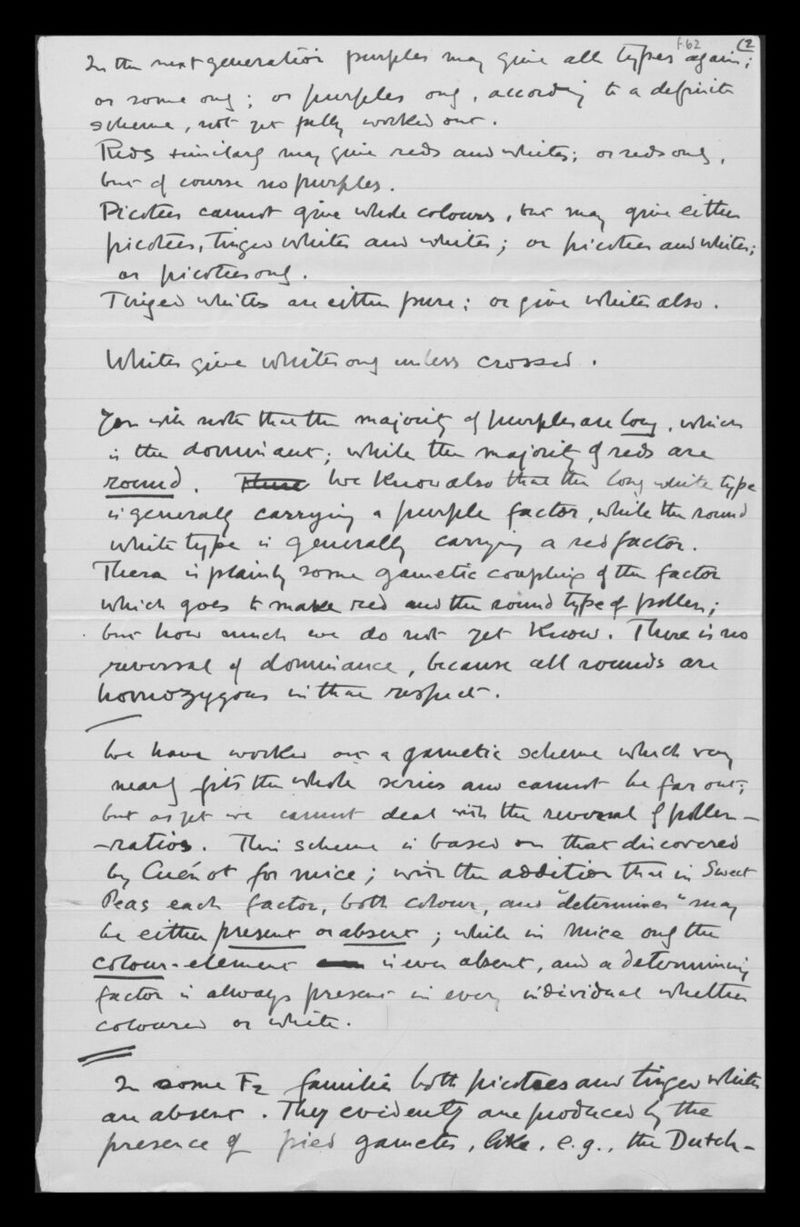 f.62 (2
In the next generation purples may give all types again;
or some only; or purples only, according to a definite
scheme, not yet fully worked out.
Reds similarly may give reds and whites; or reds only,
but of course no purples.
Picotees cannot give whole colours, but may give either
picotees, tinged whites and whites; or picotees and whites;
or picotees only.
Tinged whites are either pure; or give whites also.
Whites give whites only unless crossed.
You will note that the majority of purples are long, which
is the dominant; while the majority of reds are
round. There We know also that the long white type
is generally carrying a purple factor, while the round
white type is generally carrying a red factor.
There is plainly some gametic coupling of the factor
which goes to make red and the round type of pollen;
but how much we do not yet know. There is no
reversal of dominance, because all rounds are
homozygous in that respect.
We have worked out a gametic scheme which very
nearly fits the whole series and cannot be far out;
but as yet we cannot deal with the reversal of pollen-
-ratios. This scheme is based on that discovered
by Cuénot for mice; with the addition that in Sweet
Peas each factor, both colour, and "determiner" may
be either present or absent; while in mice only the
colour-element is ever absent, and a determining
factor is always present in every individual whether
coloured or white.
In some F2 families both picotees and tinged whites
are absent. They evidently are produced by the
presence of pied gametes, like, e.g., the Dutch-